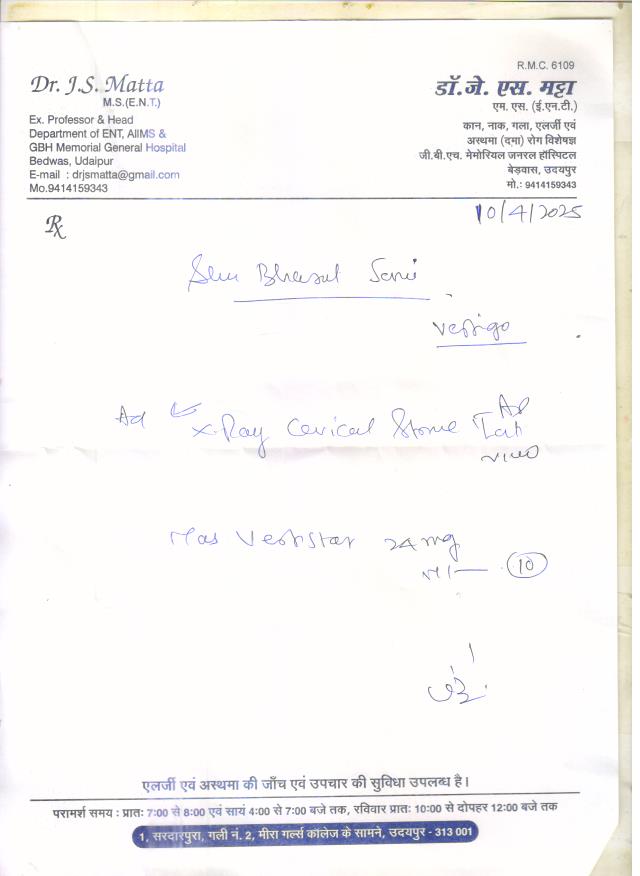 R.M.C. 6109
Dr. J.S. Matta
M.S.(E.N.T.)
Ex. Professor & Head
Department of ENT, AIIMS &
GBH Memorial General Hospital
Bedwas, Udaipur
E-mail : drjsmatta@gmail.com
Mo.9414159343
डॉ.जे. एस. मट्टा
एम. एस. (ई.एन.टी.)
कान, नाक, गला, एलर्जी एवं
अस्थमा (दमा) रोग विशेषज्ञ
जी.बी.एच. मेमोरियल जनरल हॉस्पिटल
बेड़वास, उदयपुर
मो.: 9414159343
10/4/2025
Rx
Vertigo
Ad X-Ray Cervical AP
24 mg
10
एलर्जी एवं अस्थमा की जाँच एवं उपचार की सुविधा उपलब्ध है।
परामर्श समय : प्रातः 7:00 से 8:00 एवं सायं 4:00 से 7:00 बजे तक, रविवार प्रातः 10:00 से दोपहर 12:00 बजे तक
1, सरदारपुरा, गली नं. 2, मीरा गर्ल्स कॉलेज के सामने, उदयपुर - 313 001